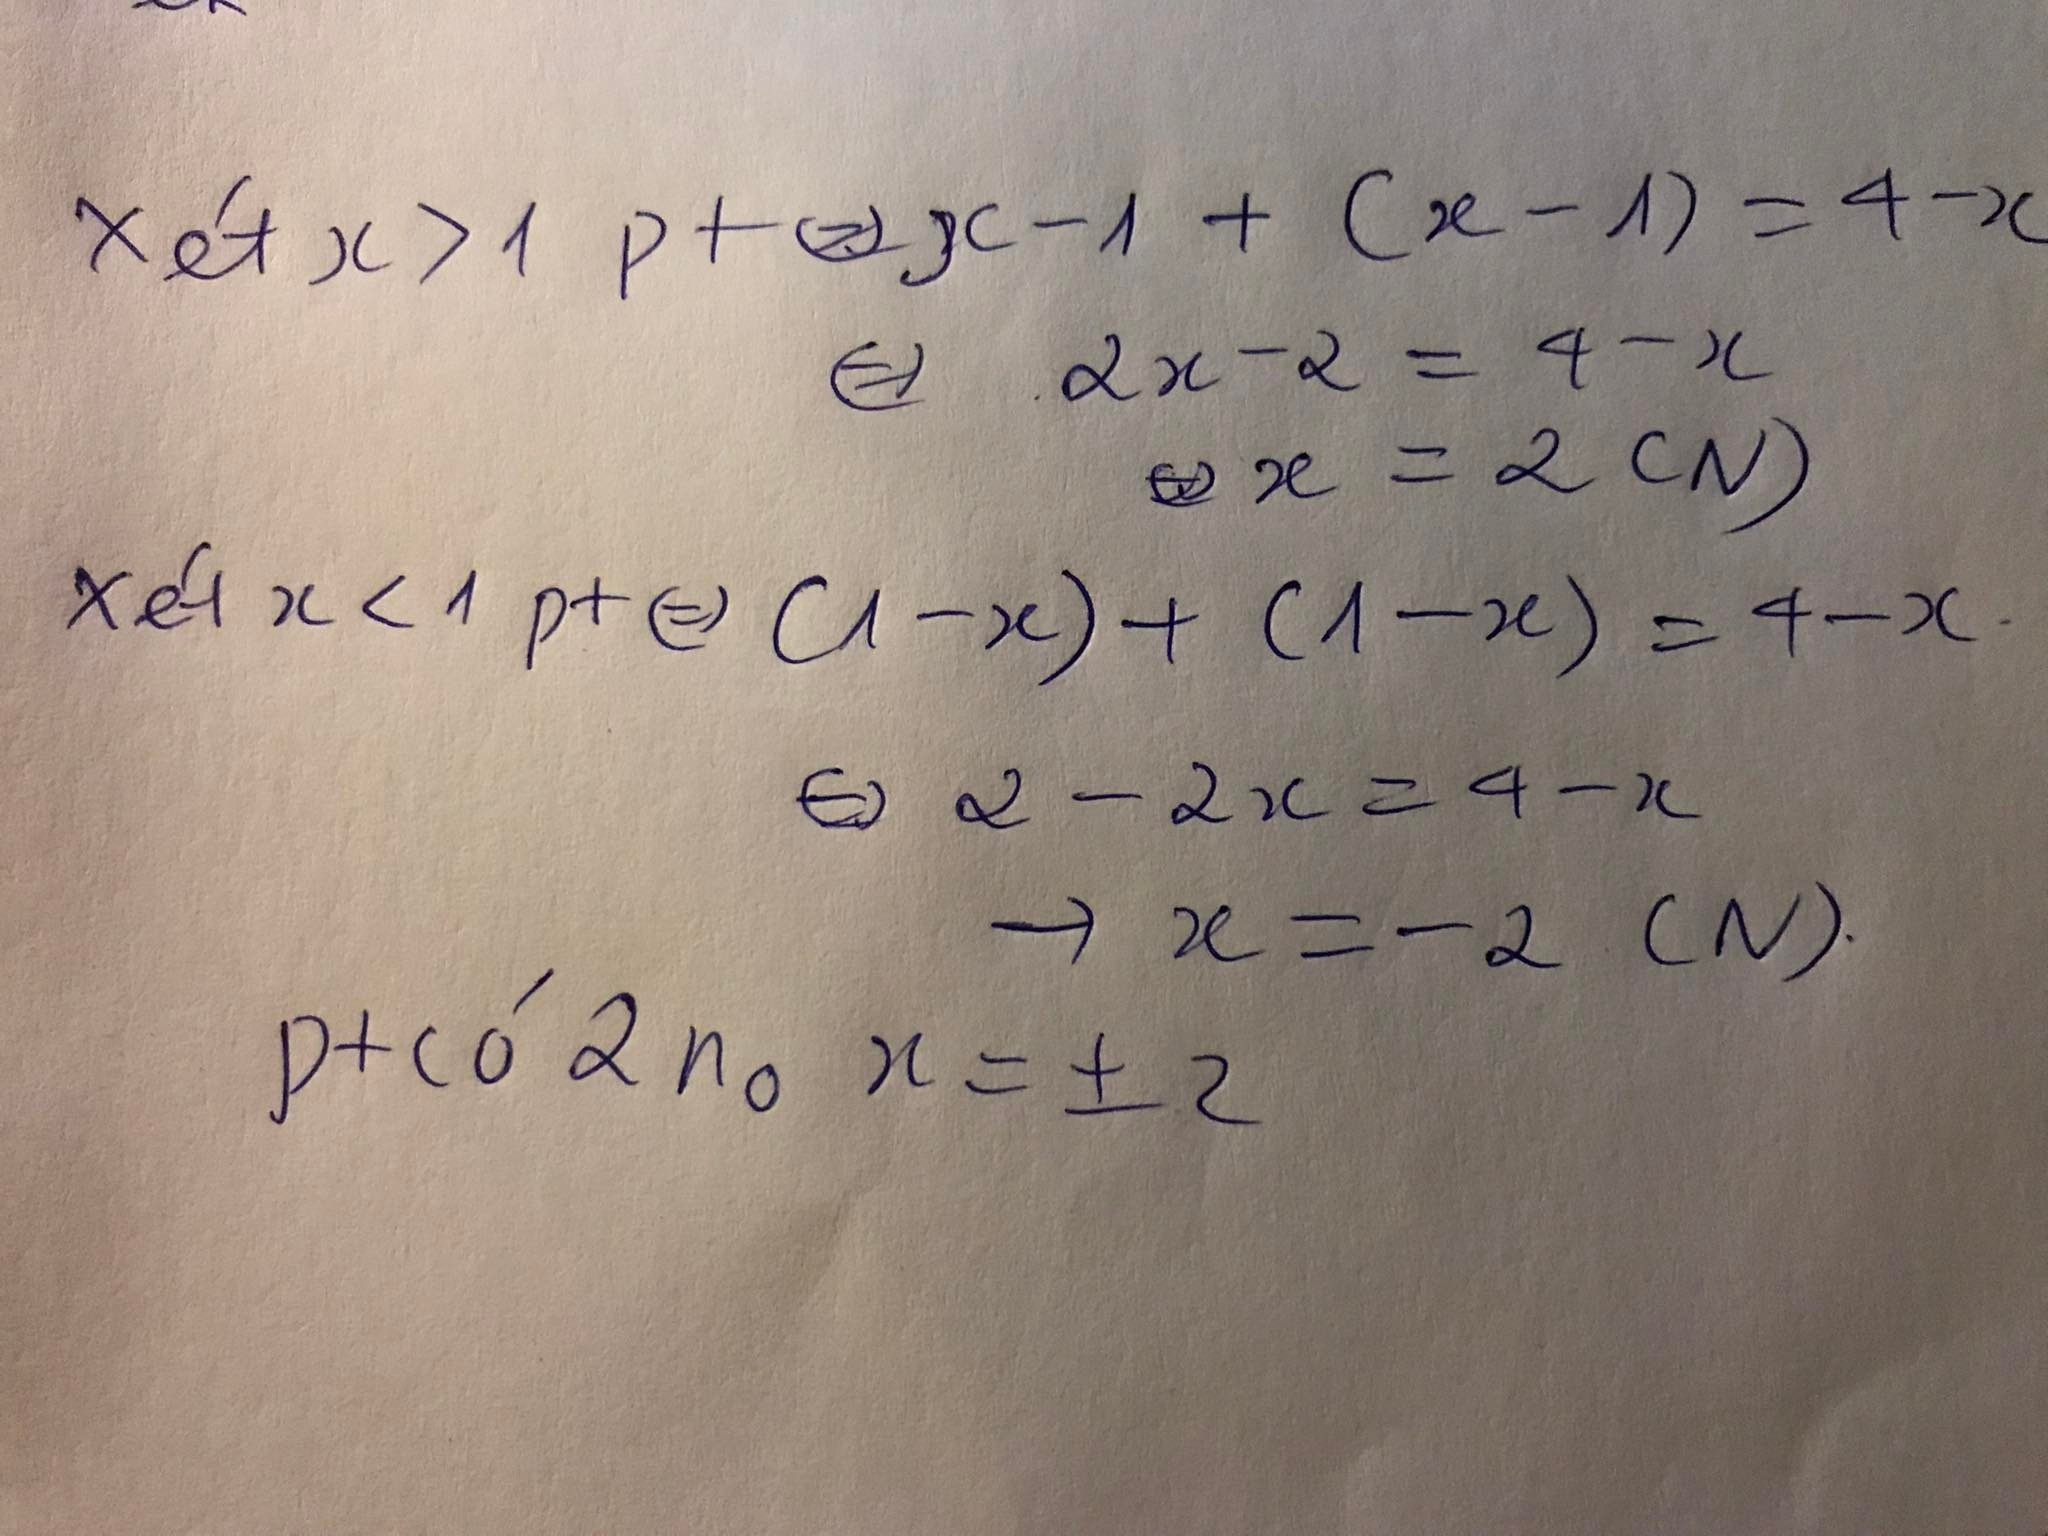 Xét x > 1 pt ⇔ x - 1 + (x - 1) = 4 - x
⇔ 2x - 2 = 4 - x
⇔ x = 2 (N)
Xét x < 1 pt ⇔ (1 - x) + (1 - x) = 4 - x.
⇔ 2 - 2x = 4 - x
→ x = -2 (N).
pt có 2 no x = ± 2